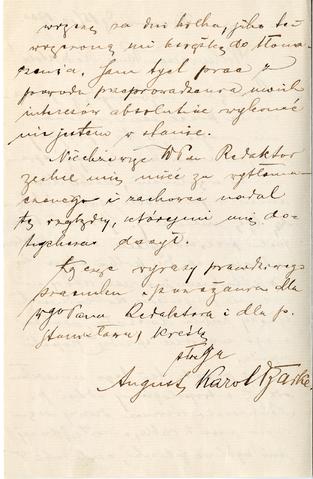 wręczę za dni kilka, jako też
wręczoną mi książkę do tłoma-
czenia. Sam tych prac z
powodu przeprowadzenia moich
interesów absolutnie wykonać
nie jestem w stanie.
Niechże więc WPan Redaktor
zechce mię mieć za wytłoma-
czonego i zachowa nadal
te względy, któremi mię do-
tychczas darzył.
Łączę wyrazy prawdziwego
szacunku i poważania dla
WgoPana Redaktora i dla p.
Stanisławy, kreślę
sługa
August Karol